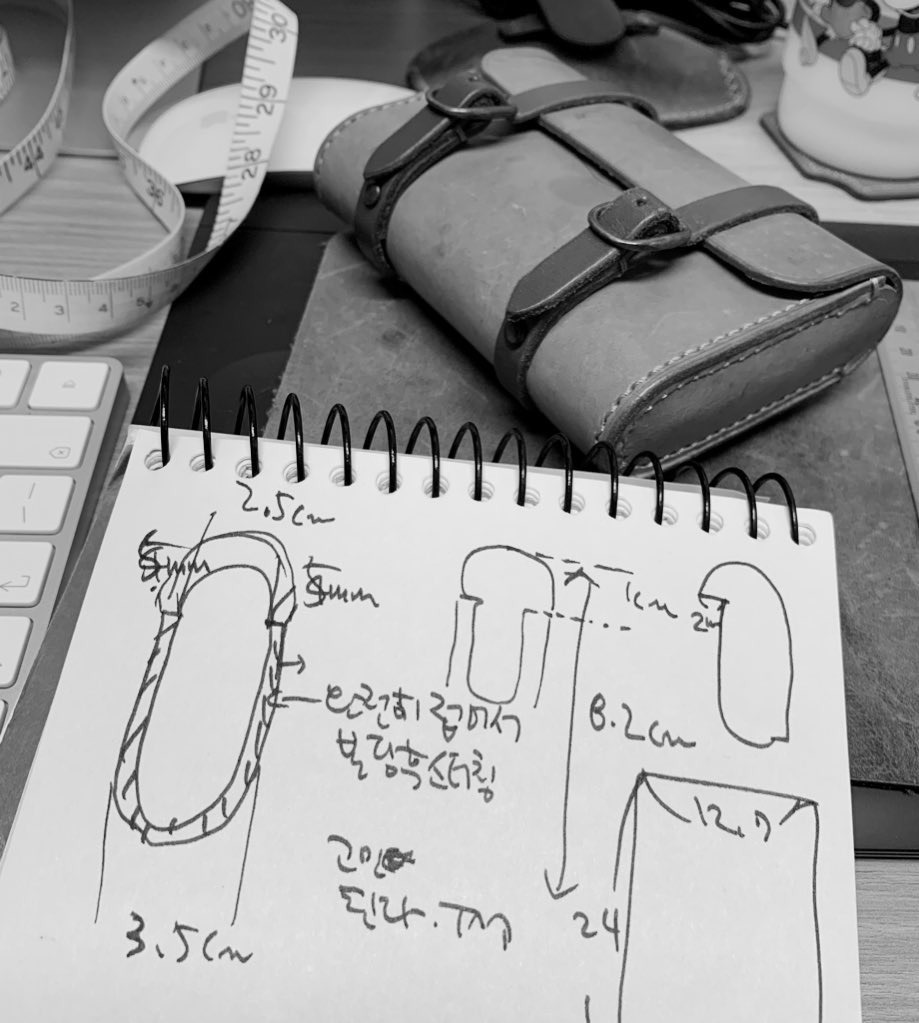 2.5cm
4mm
5mm
1cm
2m
완전히 접어서
본딩후스티칭
8.2cm
12.7
고민
된다.ㅜㅜ
24
3.5cm
30
29
28
2
3
4